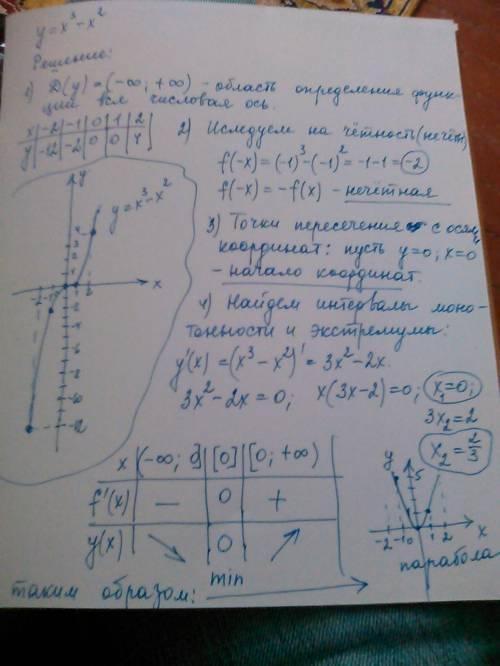 y = x³ - x²
Решение:
1) D(y) = (-∞; +∞) - область определения функ-
ции вся числовая ось.
x | -2 | -1 | 0 | 1 | 2
y | -12 | -2 | 0 | 0 | 4
2) Иследуем на чётность (нечёт)
f(-x) = (-1)³ - (-1)² = -1 - 1 = -2
f(-x) = -f(x) - нечётная
3) Точки пересечение с осям
координат: пусть y = 0; x = 0
- начало координат.
4) Найдем интервалы моно-
тонности и экстремумы:
y'(x) = (x³ - x²)' = 3x² - 2x
3x² - 2x = 0; x(3x - 2) = 0; x₁ = 0;
3x₂ = 2
x₂ = 2/3
y
y = x³ - x²
x
-2 -1 2
x | (-∞; 0] | [0] | [0; +∞)
f'(x) | — | 0 | +
y(x) | ↘ | 0 | ↗
min
y
5
-2 -1 0 1 2 x
парабола
таким образом: